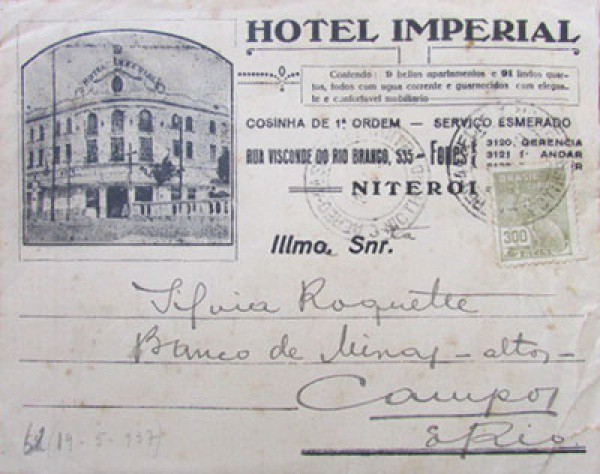 HOTEL IMPERIAL
HOTEL IMPERIAL
Contendo: 9 bellos apartamentos e 91 lindos quar-
tos, todos com agua corrente e guarnecidos com elegan-
te e confortavel mobiliario
COSINHA DE 1ª ORDEM – SERVIÇO ESMERADO
RUA VISCONDE DO RIO BRANCO, 535 – Fones
3120, GERENCIA
3121 1º ANDAR
NITEROI
BRASIL
300
Illmo. Snr.
Silvia Roquette
Banco de Minas - altos -
Campos
E. Rio
19-5-937